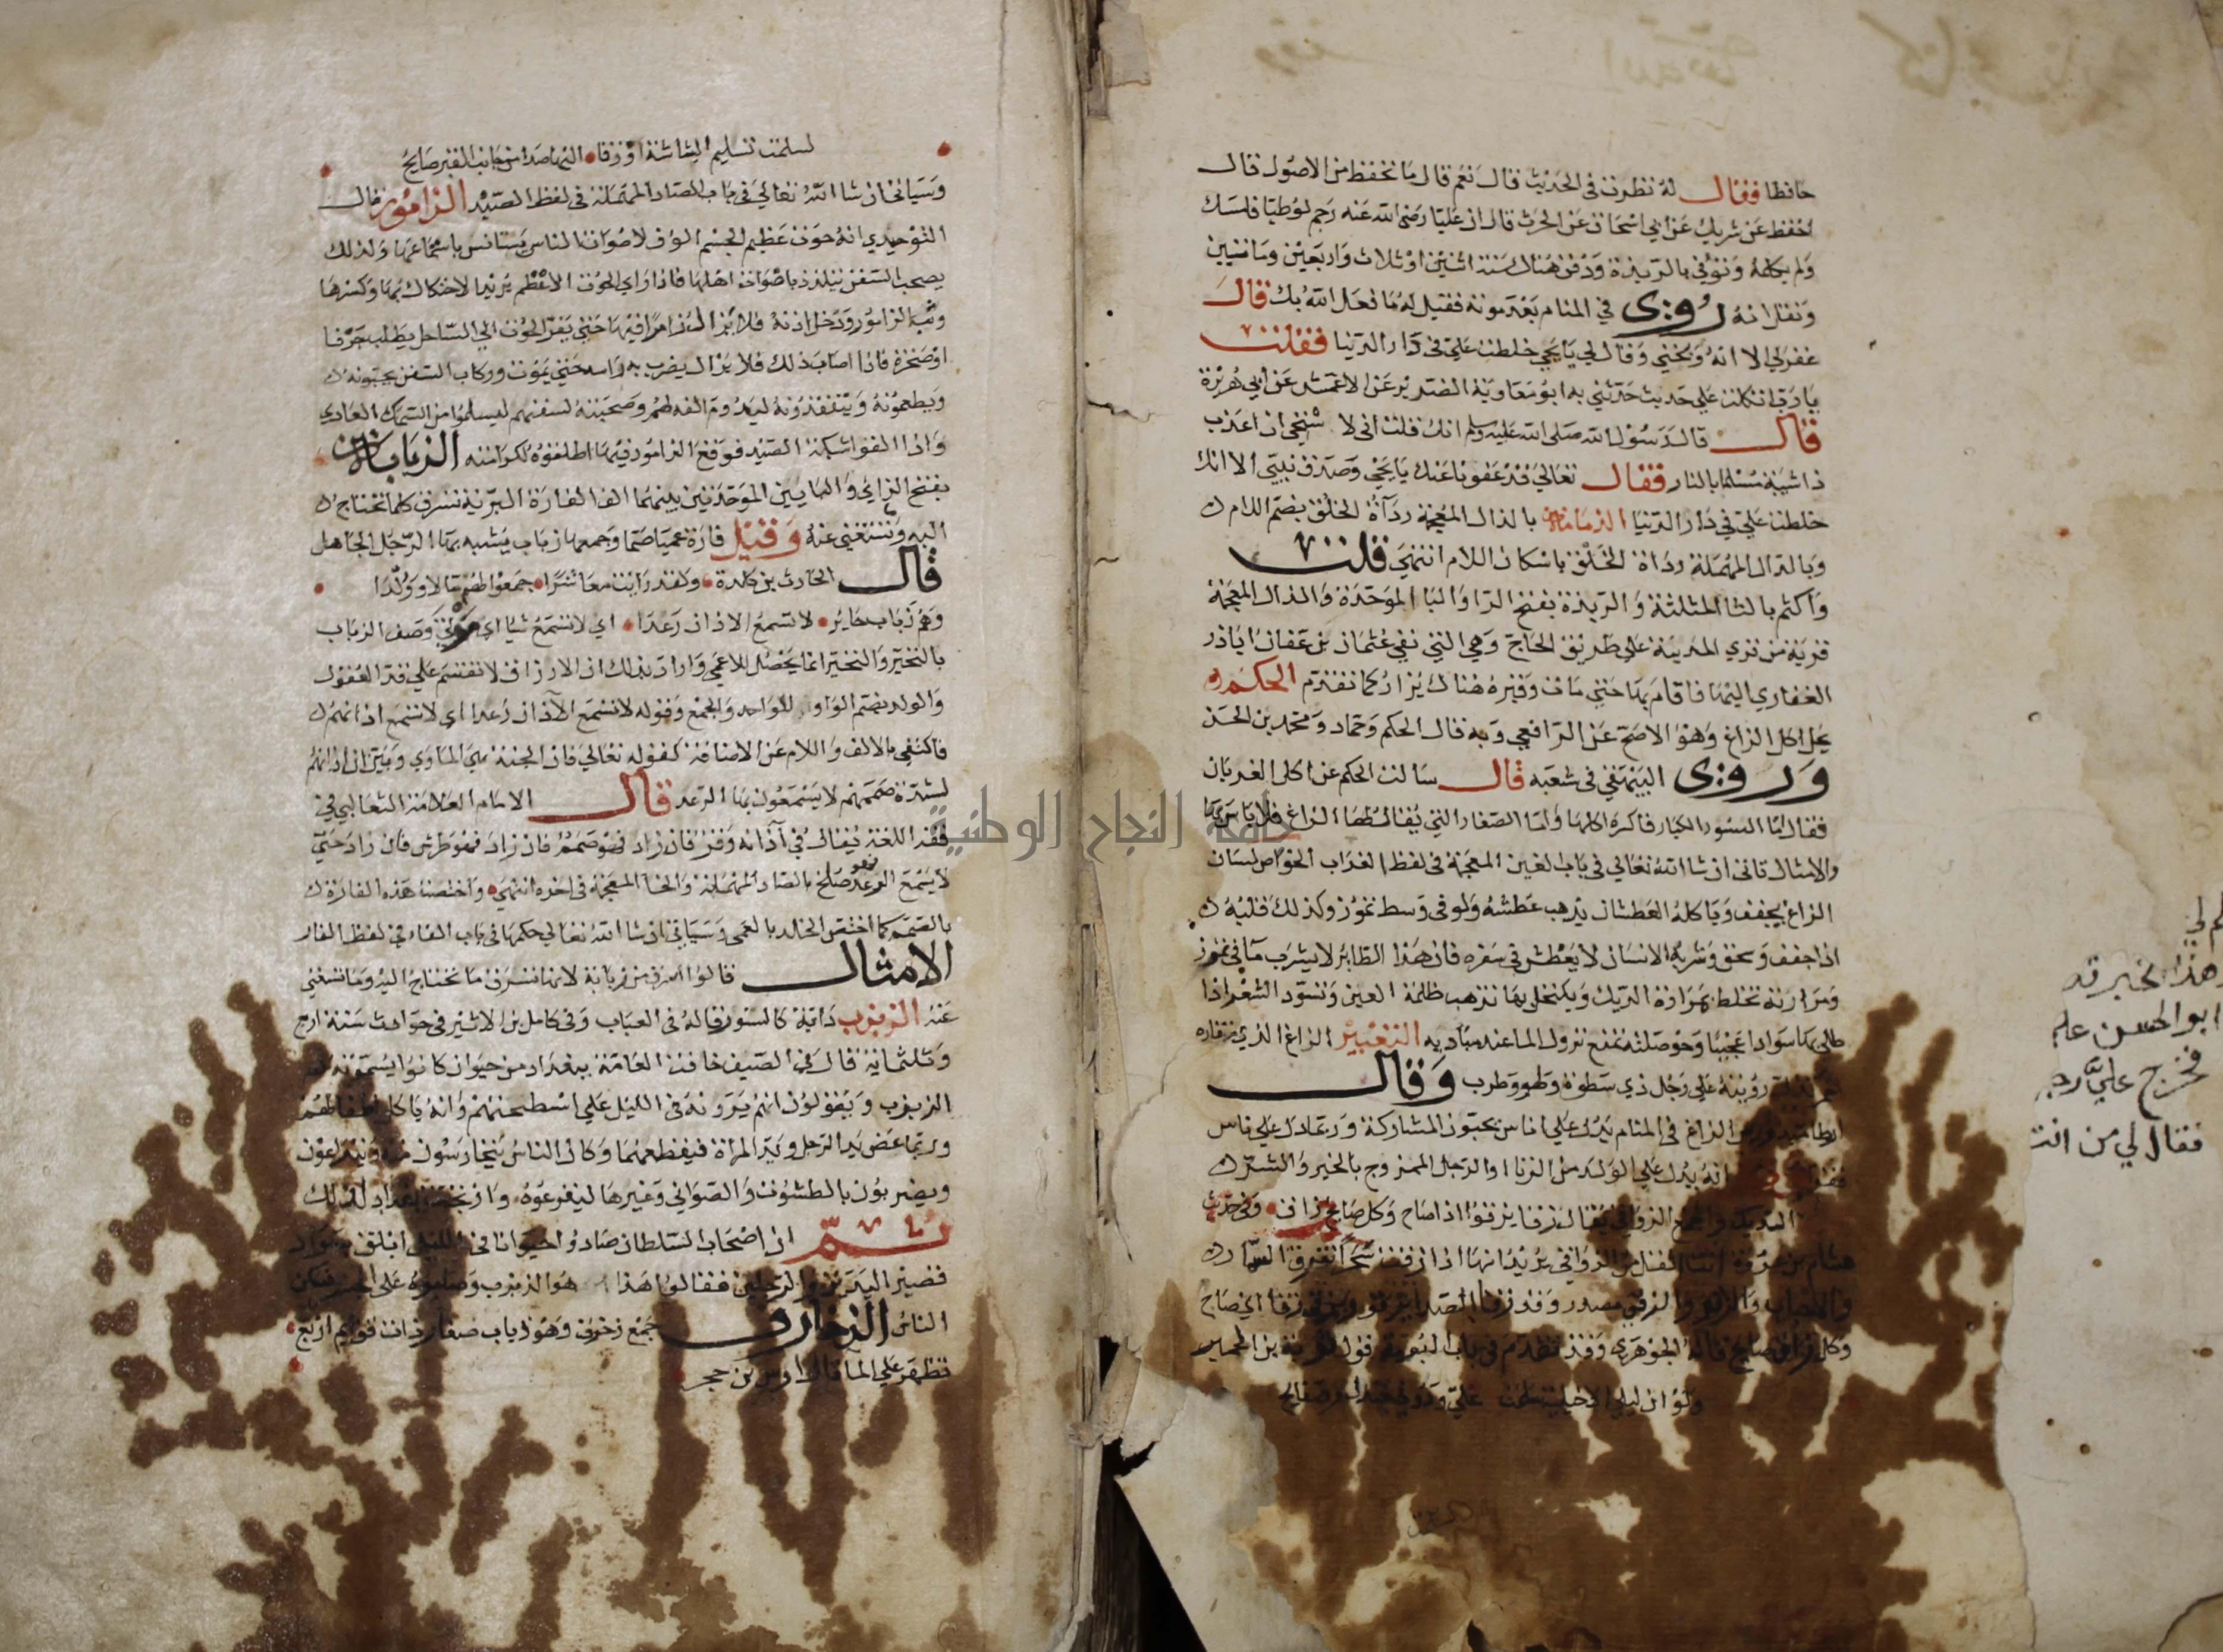 حافظا فقال له نظرت في الحديث قال نعم قال ما تحفظ من الاصول قال
احفظ عن شريك عن ابي اسحاق عن الحرث قال ان عليا رضي الله عنه رجم لوطيا فامسك
ولم يكلمه وتوفي بالربذة ودفن هناك سنة اثنين او ثلاث واربعين ومائتين
ونقل انه روي في المنام بعد موته فقيل له ما فعل الله بك قال
غفر لي الا انه وبخني وقال لي يا يحي خلطت علي في دار الدنيا فقلت
يا رب اتكلت علي حديث حدثني به ابو معاوية الضرير عن الاعمش عن ابي هريرة
قال قال رسول الله صلى الله عليه وسلم انك قلت اني لا استحي ان اعذب
ذا شيبة مسلما بالنار فقال تعالي قد عفونا عنك يا يحي وصدق نبيي الا انك
خلطت علي في دار الدنيا بالذال المعجمة رداة الخلق بضم اللام
وبالدال المهملة رداة الخلق باسكان اللام انتهي قلت
واكثم بالثا المثلثة والربذة بفتح الرا والبا الموحدة والذال المعجمة
قرية من قري المدينة علي طريق الحاج وهي التي نفي عثمان بن عفان ابا ذر
الغفاري اليها فاقام بها حتي مات وقبره هناك يزار كما تقدم الحكم
يحل اكل الزاغ وهو الاصح عن الرافعي وبه قال الحكم وحماد ومحمد بن الحسن
وروي البيهقي في شعبه قال سالت الحكم عن اكل الغربان
فقال اما السود الكبار فاكره اكلها واما الصغار التي يقال لها الزاغ فلا باس بها
والامثال تاتي ان شا الله تعالي في باب الغين المعجمة في لفظ الغراب الخواص لسان
الزاغ يجفف وياكله العطشان يذهب عطشه ولو في وسط تموز وكذلك قلبه
اذا جفف وسحق وشربه الانسان لا يعطش في سفره فان هذا الطاير لا يشرب ما في تموز
ومرارته تخلط بمرارة الديك ويكتحل بها تذهب ظلمة العين وتسود الشعر اذا
طلي بها سوادا عجيبا وحوصلته تمنع نزول الما عند مباديه التعبير الزاغ الذي منقاره
رويته علي رجل ذي سطوة ولهو وطرب وقال
الزاغ في المنام يدل علي اناس يحبون المشاركة وربما دل علي ناس
فقرا انه يدل علي الولد من الزنا او الرجل الممزوج بالخير والشر
الديك والجمع الزواقي يقال زقا يزقوا اذا صاح وكل صايح زاق وفي حديث
هشام بن عروة انت اثقل من الزواقي يريد انها اذا زقت سحرا تفرق السمار
والزقو مصدر وقد زقا الصدا يزقو ويزقي زقا اي صاح
وكل زاق صايح قاله الجوهري وقد تقدم في باب البومة قول توبة بن الحمير
ولو ان ليلي الاخيلية سلمت علي ودوني جندل وصفايح
لي
وهذا بخير قد
ابو الحسن علم
فخرج علي رجل
فقال لي من انت
لسلمت تسليم البشاشة او زقا اليها صدا من جانب القبر صايح
وسياتي ان شا الله تعالي في باب الصاد المهملة في لفظ الصيد الزامور قال
التوحيدي انه حوت عظيم الجسم الوف لاصوات الناس يستانس باستماعها ولذلك
يصحب السفن يتلذذ باصوات اهلها فاذا راي الحوت الاعظم يريد الاحتكاك بها وكسرها
وثب الزامور ودخل اذنه فلا يزال زامرا فيها حتي يفر الحوت الي الساحل يطلب جرفا
او صخرة فاذا اصاب ذلك فلا يزال يضرب به راسه حتي يموت وركاب السفن يحبونه
ويطعمونه ويتفقدونه ليدوم الفه لهم وصحبته لسفنهم ليسلموا من السمك العادي
واذا القوا شبكة الصيد فوقع الزامور فيها اطلقوه لكرامته الزبابة
بفتح الزاي والبايين الموحدتين بينهما الف الفارة البرية تسرق كلما تحتاج
اليه وتستغني عنه وقيل فارة عميا صما وجمعها زباب يشبه بها الرجل الجاهل
قال الحارث بن كلدة ولقد رايت معاشرا جمعوا لهم مالا وولدا
وهم زباب حاير لا تسمع الاذان رعدا اي لا تسمع شيا اي وصف الزباب
بالتحير والتحير انما يحصل للاعمي واراد بذلك ان الارزاق لا تقسم علي قدر العقول
والولد بضم الواو للواحد والجمع وقوله لا تسمع الآذان رعدا اي لا تسمع اذانهم
فاكتفي بالالف واللام عن الاضافة كقوله تعالي فان الجنة هي الماوي وبين ان اذانهم
لشدة صممهم لا يسمعون بها الرعد قال الامام العلامة الثعالبي في
فقه اللغة يقال في آذانه وقر فان زاد فهو صمم فان زاد فهو طرش فان زاد حتي
لا يسمع الرعد فهو صلخ بالصاد المهملة والخا المعجمة في اخره انتهي واختصت هذه الفارة
بالصمم كما اختص الخلد بالعمي وسياتي ان شا الله تعالي حكمها في باب الفاء في لفظ الفار
الامثال قالوا اسرق من زبابة لانها تسرق ما تحتاج اليه وما تستغني
عنه الزبزب دابة كالسنور قاله في العباب وفي كامل بن الاثير في حوادث سنة اربع
وثلثماية قال في الصيف خافت العامة ببغداد من حيوان كانوا يسمونه
الزبزب ويقولون انهم يرونه في الليل علي اسطحتهم وانه ياكل اطفالهم
وربما عض يد الرجل ويد المراة فيقطعهما وكان الناس يتحارسون منه ويتزاعون
ويضربون بالطشوت والصواني وغيرها ليفزعوه وارتجت بغداد لذلك
ثم ان اصحاب السلطان صادوا حيوانا في الليل ابلق بسواد
قصير اليدين والرجلين فقالوا هذا هو الزبزب وصلبوه علي الجسر فسكن
الناس الزخارف جمع زخرف وهو ذباب صغار ذات قوايم اربع
تظهر علي الما قال اوس بن حجر
جامعة النجاح الوطنية